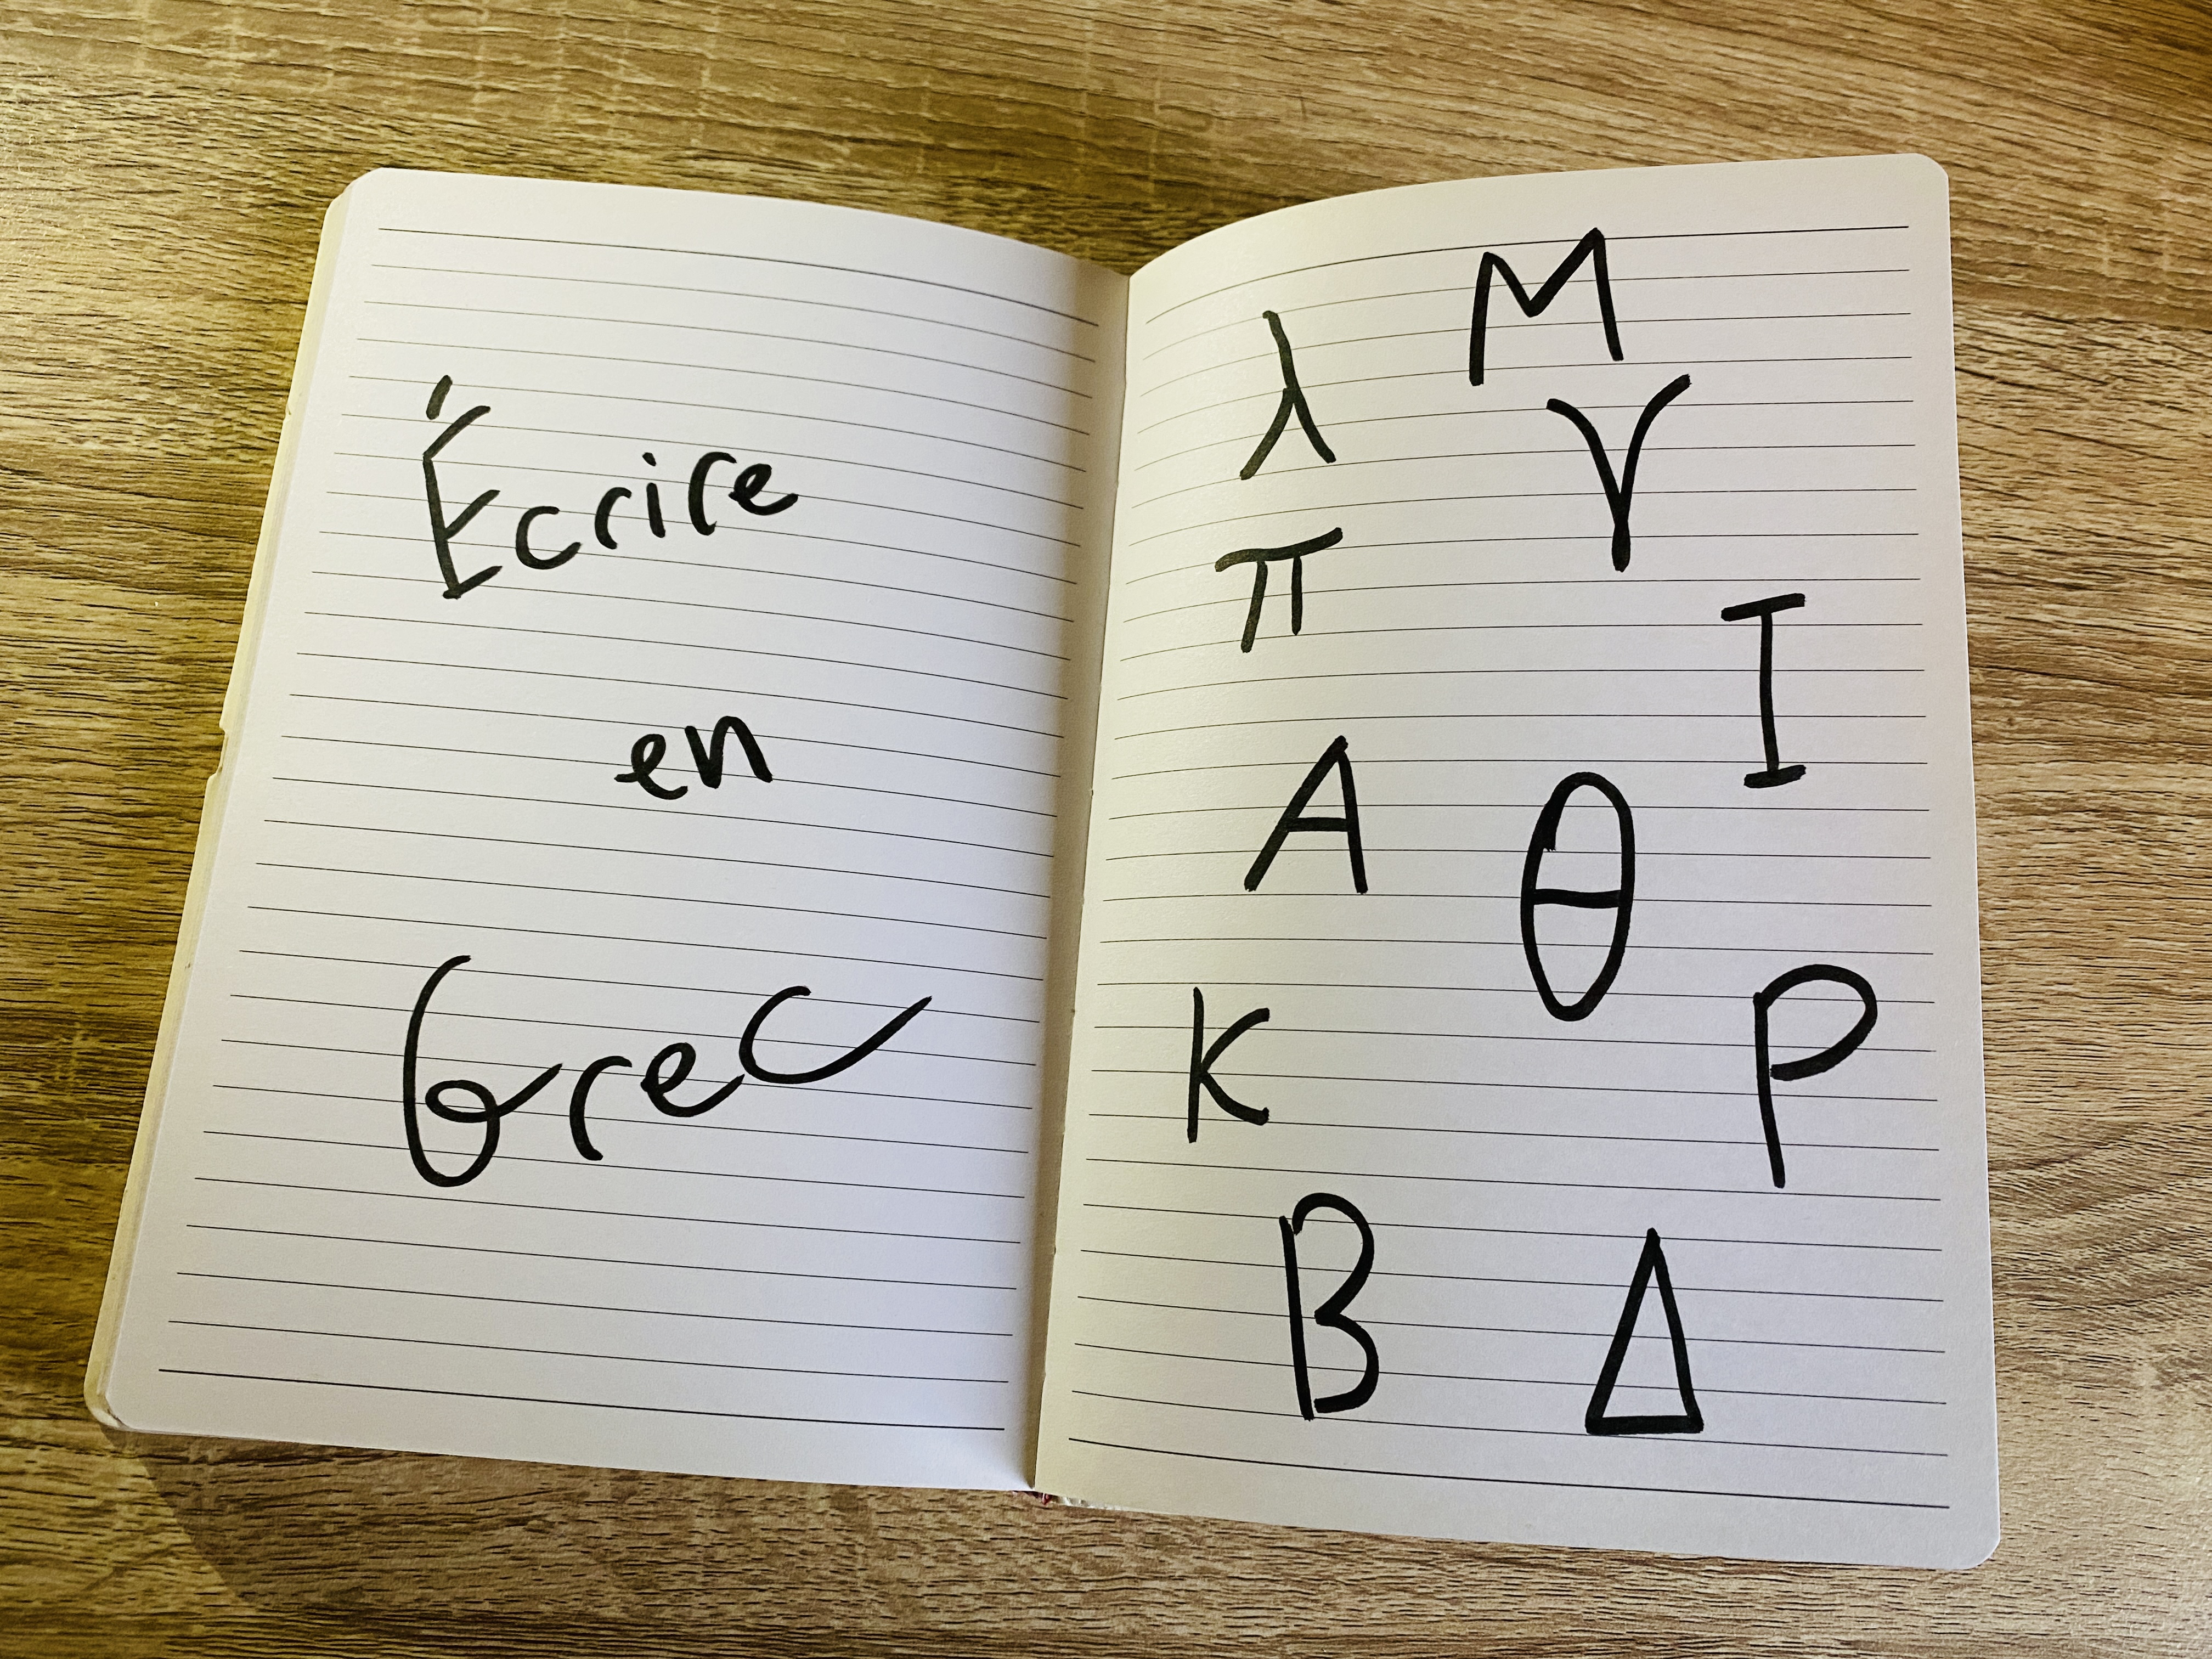 Écrire
en
Grec
Μ
λ
γ
π
Ι
Α
θ
Κ
Ρ
Β
Δ